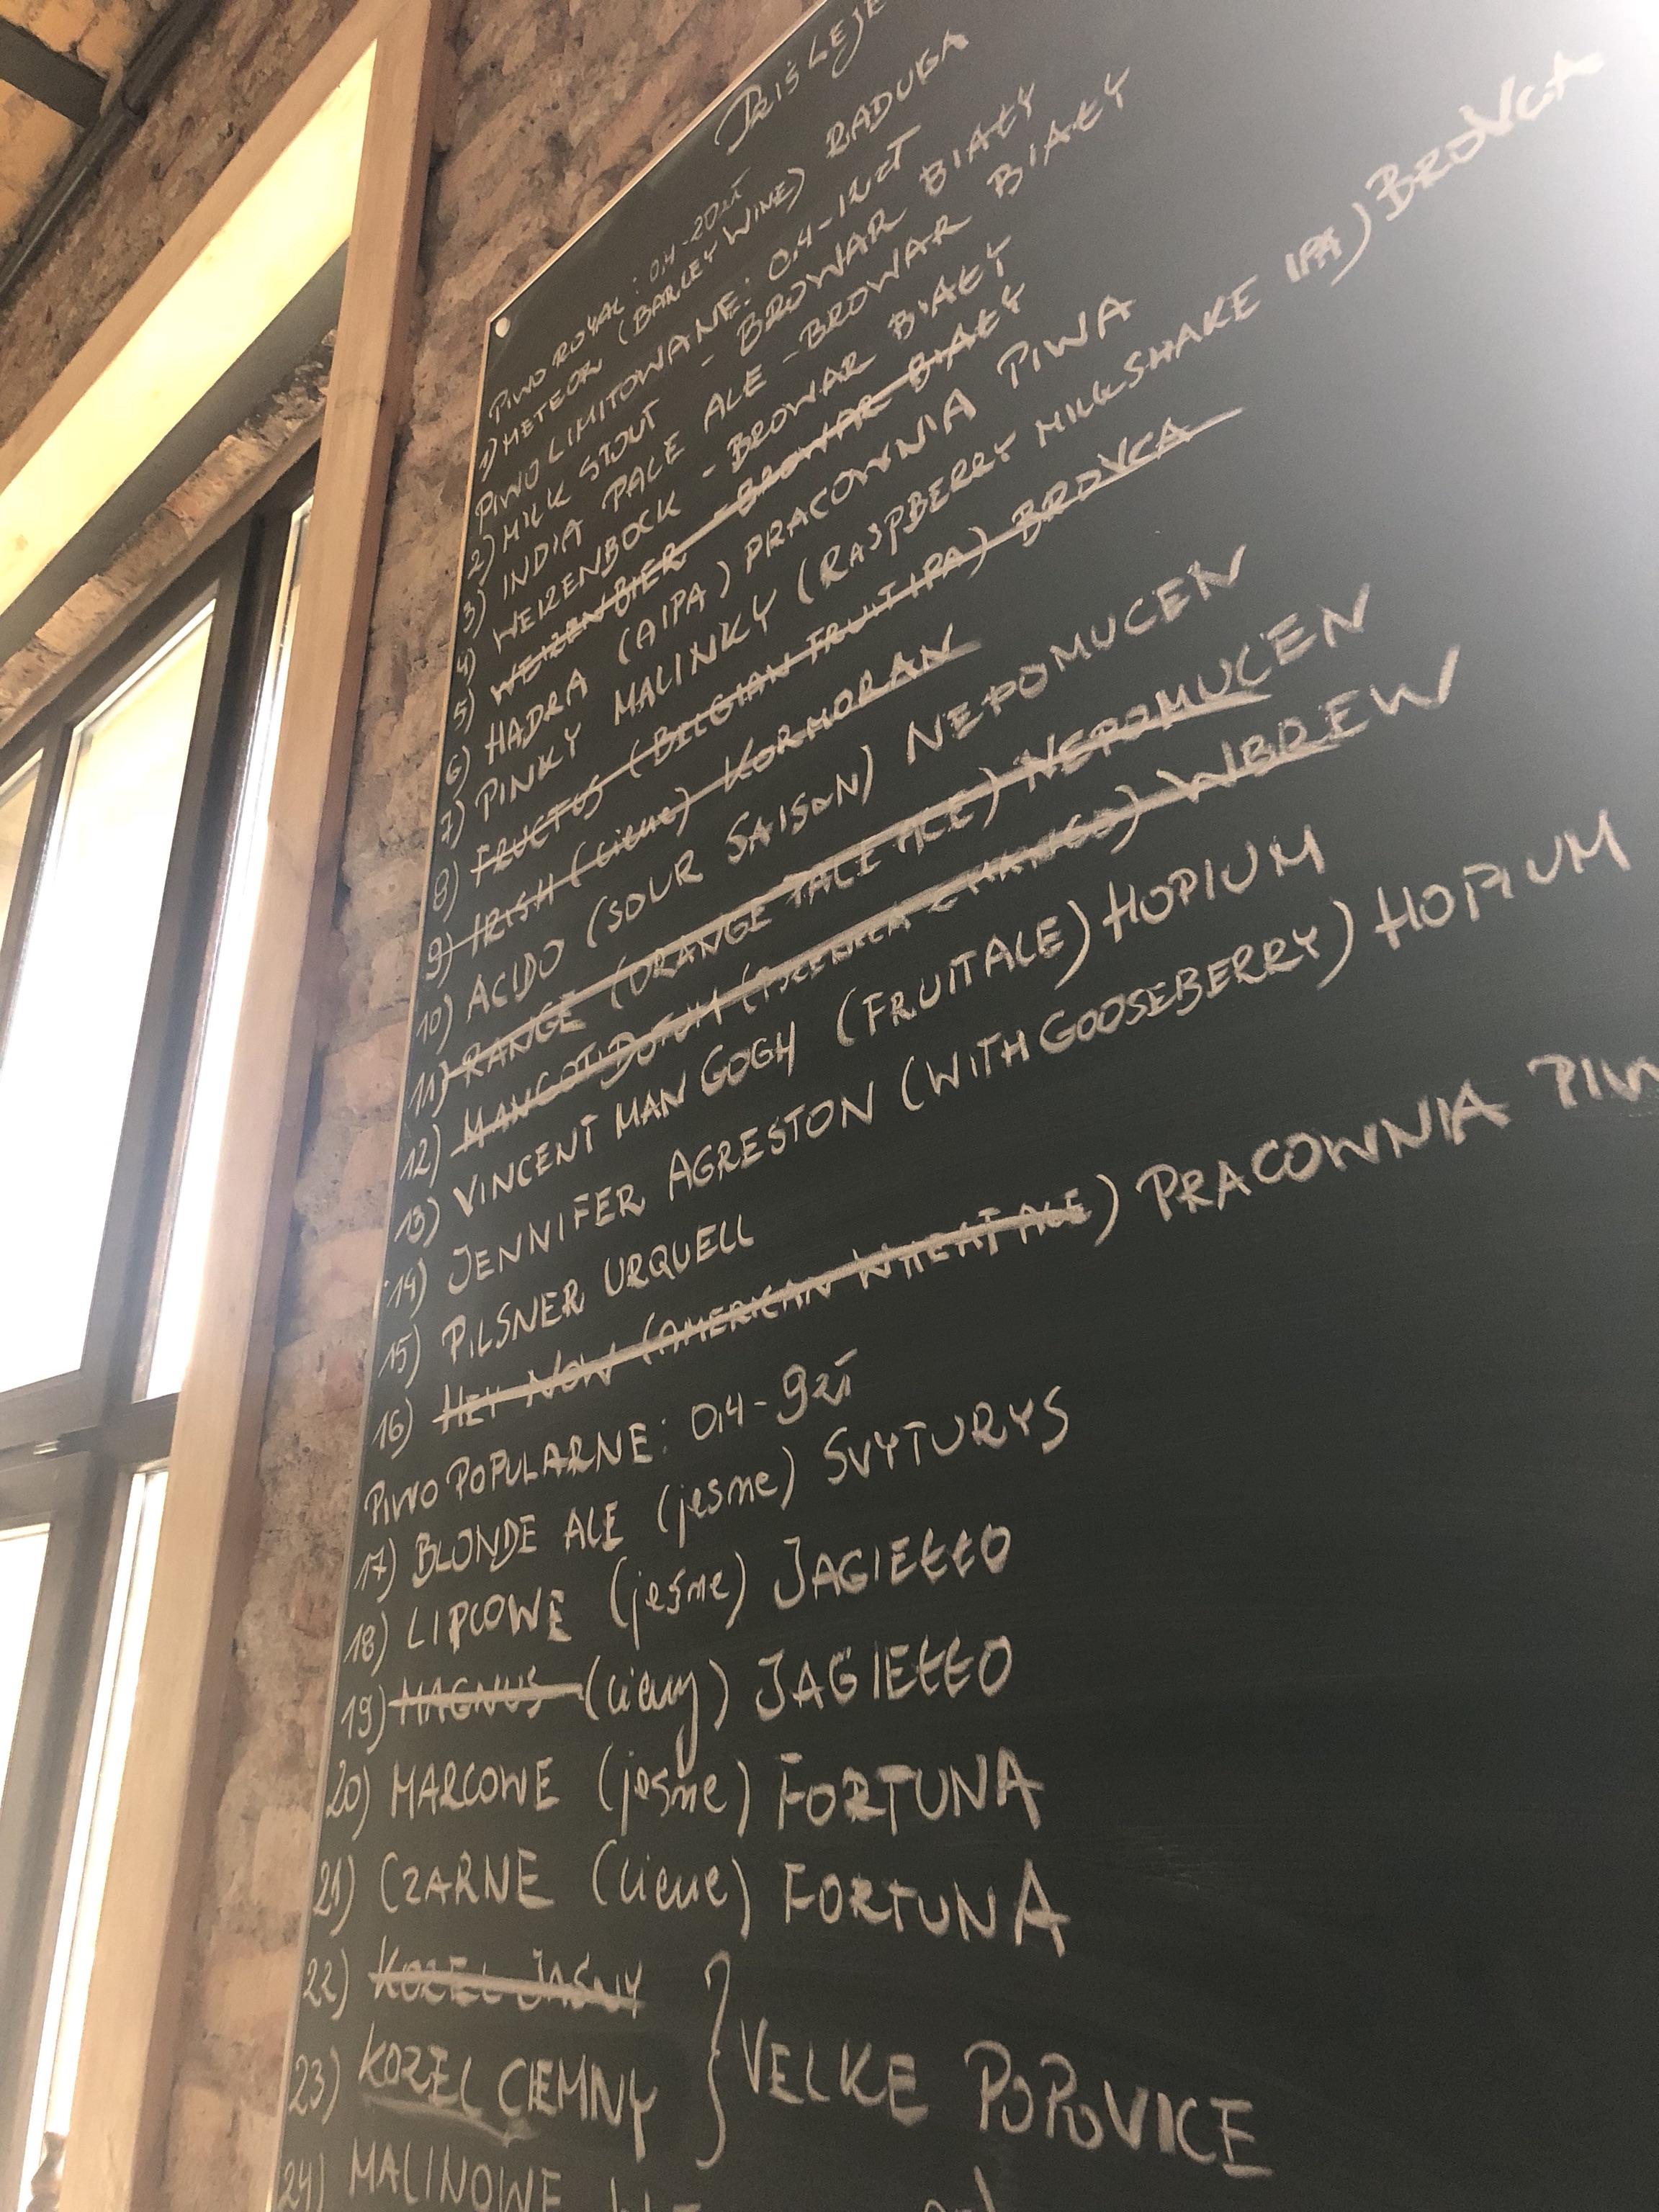 DZIŚ LEJE
PIWO ROYAL: 0.4-20zł
1) METEOR (BARLEY WINE) RADUGA
PIWO LIMITOWANE: 0.4-12zł
2) MILK STOUT - BROWAR BIAŁY
3) INDIA PALE ALE - BROWAR BIAŁY
4) WEIZENBOCK - BROWAR BIAŁY
5) WEIZENBIER - BROWAR BIAŁY
6) HADRA (AIPA) PRACOWNIA PIWA
7) PINKY MALINKY (RASPBERRY MILKSHAKE IPA) BROVCA
8) FRUCTUS (BELGIAN FRUIT IPA) BROVCA
9) IRISH (ciemne) KORMORAN
10) ACIDO (SOUR SAISON) NEPOMUCEN
11) RANGE (ORANGE PALE ALE) NEPOMUCEN
12) (PSZENICA Z MANGO) WBREW
13) VINCENT MAN GOGH (FRUIT ALE) HOPIUM
14) JENNIFER AGRESTON (WITH GOOSEBERRY) HOPIUM
15) PILSNER URQUELL
16) HEY NOW (AMERICAN WHEAT ALE) PRACOWNIA PIW
PIWO POPULARNE: 0.4-9zł
17) BLONDE ALE (jasne) SVYTURYS
18) LIPCOWE (jasne) JAGIEŁŁO
19) MAGNUS (ciemny) JAGIEŁŁO
20) MARCOWE (jasne) FORTUNA
21) CZARNE (ciemne) FORTUNA
22) KOZEL JASNY
23) KOZEL CIEMNY } VELKE POPOVICE
24) MALINOWE